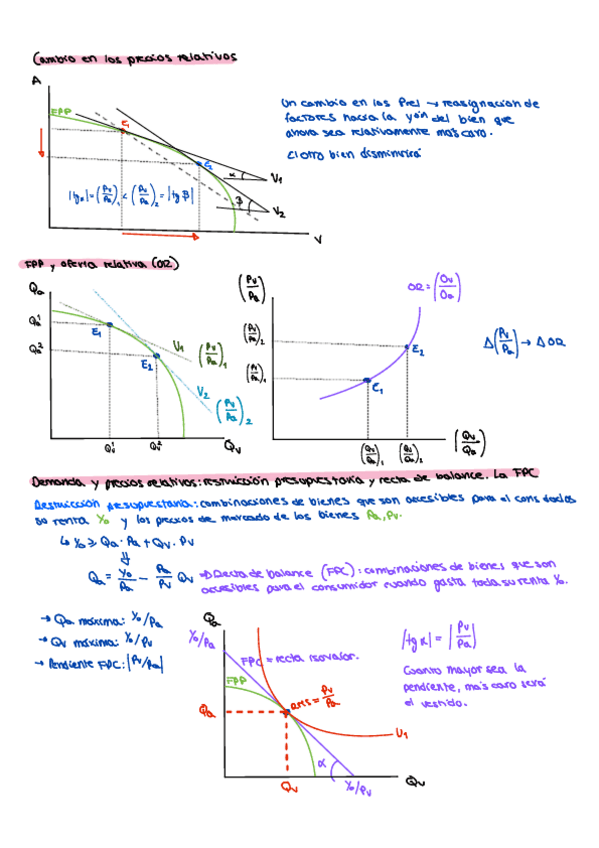 Cambio en los precios relativos
A
FPP
E1
E2
Un cambio en los Prel → reasignación de
factores hacia la yón del bien que
ahora sea relativamente más caro.
El otro bien disminuirá
α
V1
|tgα| = (Pv/Pa)1 < (Pv/Pa)2 = |tg β|
β
V2
V
FPP y oferta relativa (OR)
Qa
Qa1
Qa2
E1
E2
V1 (Pv/Pa)1
V2 (Pv/Pa)2
Qv1
Qv2
Qv
(Pv/Pa)
OR = (Qv/Qa)
(Pv/Pa)2
E2
(Pv/Pa)1
E1
Δ(Pv/Pa) → Δ OR
(Qv/Qa)1
(Qv/Qa)2
(Qv/Qa)
Demanda y precios relativos: restricción presupuestaria y recta de balance. La FPC
Restricción presupuestaria: combinaciones de bienes que son accesibles para el cons dadas
su renta Y0 y los precios de mercado de los bienes Pa, Pv.
↳ Y0 ≥ Qa · Pa + Qv · Pv
⇓
Qa = Y0/Pa − Pa/Pv Qv ⇒ Recta de balance (FPC): combinaciones de bienes que son
accesibles para el consumidor cuando gasta toda su renta Y0.
→ Qa máxima: Y0/Pa
→ Qv máxima: Y0/Pv
→ Pendiente FPC: |Pv/Pa|
Qa
Y0/Pa
FPC = recta isovalor.
FPP
= Pv/Pa
Qa
U1
α
Qv
Y0/Pv
Qv
|tg α| = |Pv/Pa|
Cuanto mayor sea la
pendiente, más caro será
el vestido.